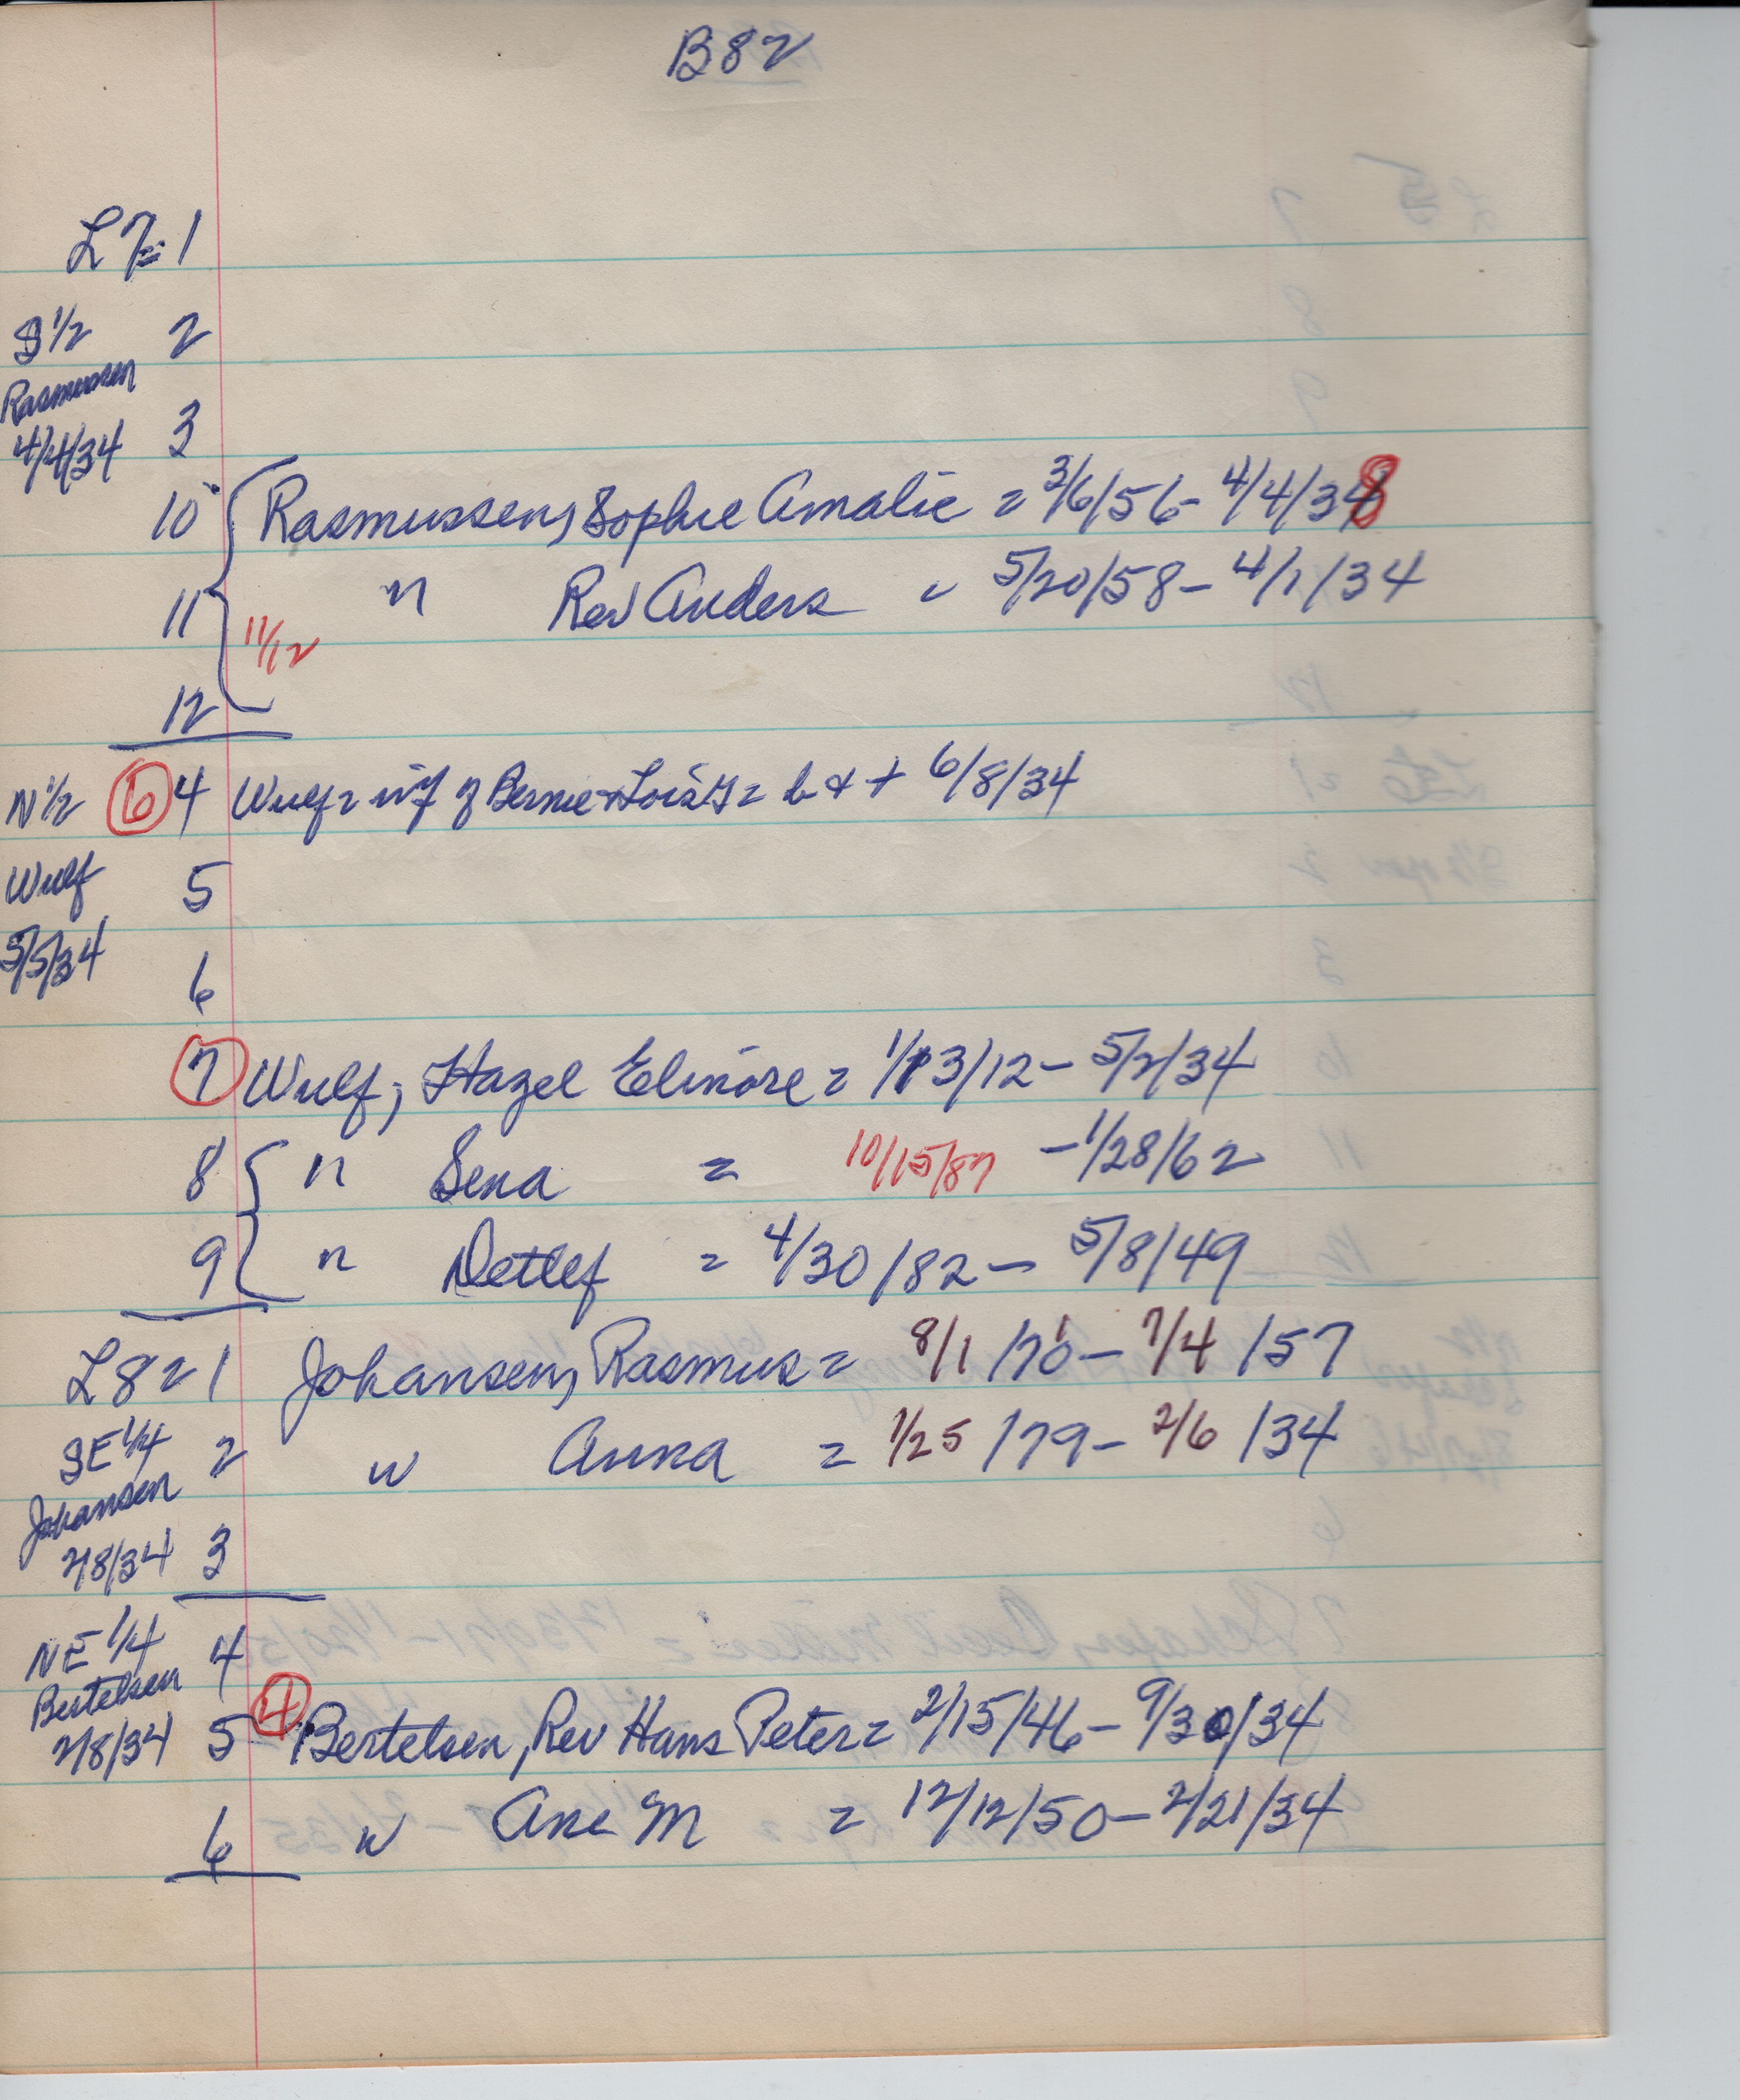 B82
L7=1
S 1/2 2
Rasmussen
4/4/34 3
10 Rasmussen, Sophie Amalie = 3/6/56 - 4/4/38
11 " Rev Anders = 5/20/58 - 4/1/34
11/12
12
N 1/2 6 4 Wulf = inf of Bernie + = b & + 6/8/34
Wulf 5
5/5/34 6
7 Wulf, Hazel Elinore = 1/13/12 - 5/2/34
8 " Sena = 10/15/87 - 1/28/62
9 " Detlef = 4/30/82 - 5/8/49
L8=1 Johansen, Rasmus = 8/1/71 - 7/4/57
SE 1/4 2 " Anna = 1/25/79 - 2/6/34
Johansen
2/8/34 3
NE 1/4 4
Bertelsen
2/8/34 5 4 Bertelsen, Rev Hans Peter = 2/15/46 - 9/30/34
6 " Ane M = 12/12/50 - 2/21/34